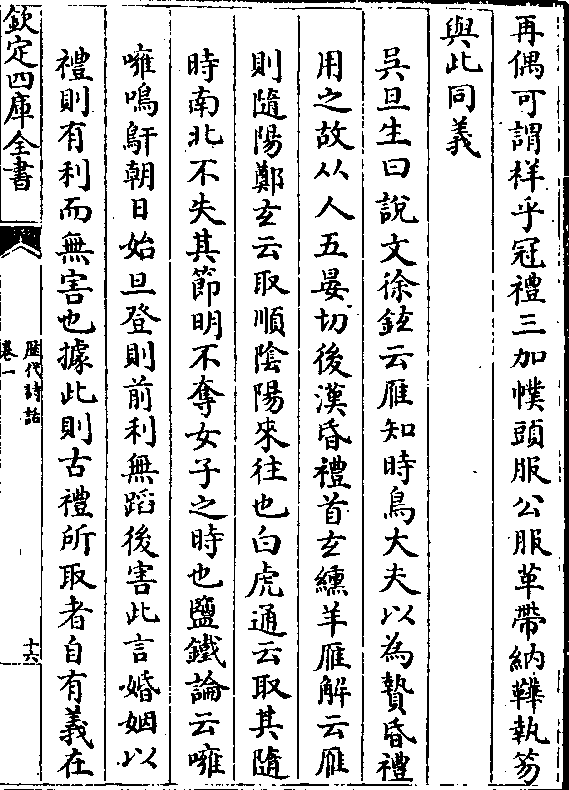 再偶可謂样乎冠禮三加幞頭服公服革帶納鞾執笏
與此同義
吳旦生曰說文徐鉉云雁知時鳥大夫以為贄昏禮
用之故从人五晏切後漢昏禮首玄纁羊雁解云雁
則隨陽鄭玄云取順陰陽來往也白虎通云取其隨
時南北不失其節明不奪女子之時也鹽鐵論云嗈
嗈鳴鳱朝日始旦登則前利無蹈後害此言婚姻以
禮則有利而無害也據此則古禮所取者自有義在
欽定四庫全書
歷代詩話
卷一
十六